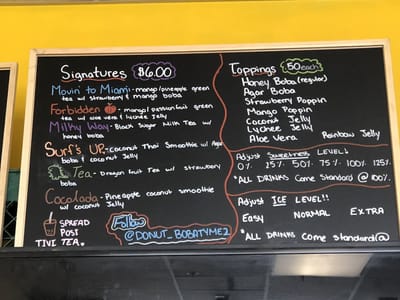 Signatures $6.00
Movin' to Miami - mango/pineapple green
tea w/ strawberry & mango boba
Forbidden - mango/passionfruit green
tea w/ aloe vera & lychee Jelly
Milky Way - Black Sugar Milk Tea w/
honey boba
Surf's UP - Coconut Thai Smoothie w/ Agar
boba & coconut Jelly
Tea - Dragon fruit Tea w/ strawberry
boba
Cocolada - Pineapple coconut smoothie
w/ coconut Jelly
SPREAD
POSI
TIVI TEA.
Follow
@DONUT_BOBATYME2
Toppings .50 each
Honey Boba (regular)
Agar Boba
Strawberry Poppin
Mango Poppin
Coconut Jelly
Lychee Jelly
Aloe Vera Rainbow Jelly
Adjust Sweetness LEVEL!
0% 25% 50% 75% 100% 125%
*ALL DRINKS Come Standard @ 100%
Adjust ICE LEVEL!!
Easy NORMAL EXTRA
*ALL DRINKS Come standard@